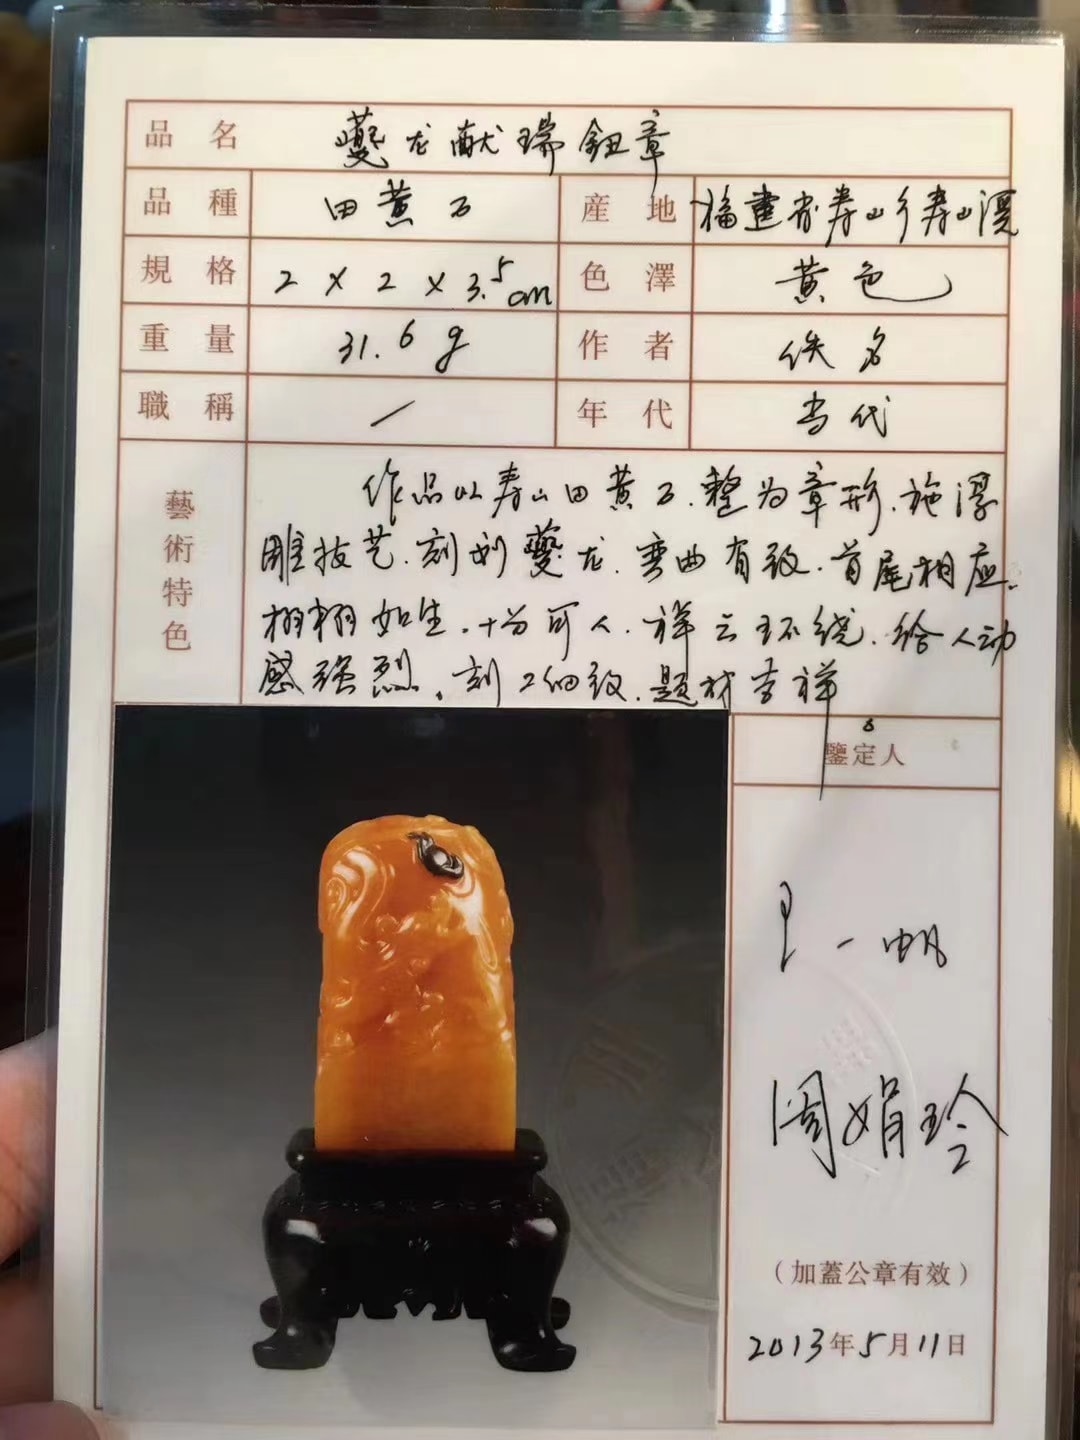 品名 夔龙献瑞钮章
品種 田黄石 産地 福建省寿山乡寿山溪
規格 2×2×3.5cm 色澤 黄色
重量 31.6g 作者 佚名
職稱 一 年代 当代
藝術特色
作品以寿山田黄石.整为章形.施浮
雕技艺.刻划夔龙.弯曲有致.首尾相应.
栩栩如生.十分可人.祥云环绕.给人动
感强烈。刻工细致.题材吉祥。
鑒定人
王一帆
周娟玲
（加蓋公章有效）
2013年5月11日